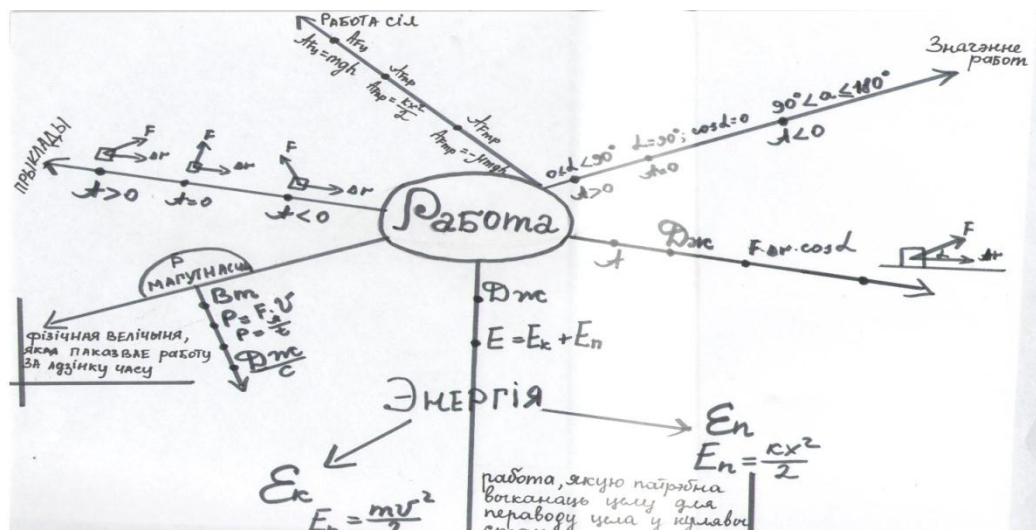 РАБОТА СІЛ
Aғц
Aғц=mgh
Aпр
Aпр=кx²/2
AFтр
AFтр=-μmgh
Значэнне
работ
0≤α<90°
A>0
α=90°; cosα=0
A=0
90°<α≤180°
A<0
ПРЫКЛАДЫ
F
Δr
A>0
F
Δr
A=0
F
Δr
A<0
Работа
A
Дж
F·Δr·cosα
F
α
Δr
P
МАГУТНАСЦЬ
Вт
P=F·υ
Дж/с
ФІЗІЧНАЯ ВЕЛІЧЫНЯ,
ЯКАЯ ПАКАЗВАЕ РАБОТУ
ЗА АДЗІНКУ ЧАСУ
Дж
E=Eк+Eп
ЭНЕРГІЯ
Eп
Eп=кx²/2
Eк
Eк=mυ²/2
работа, якую патрэбна
выканаць целу для
пераводу цела у нулявы